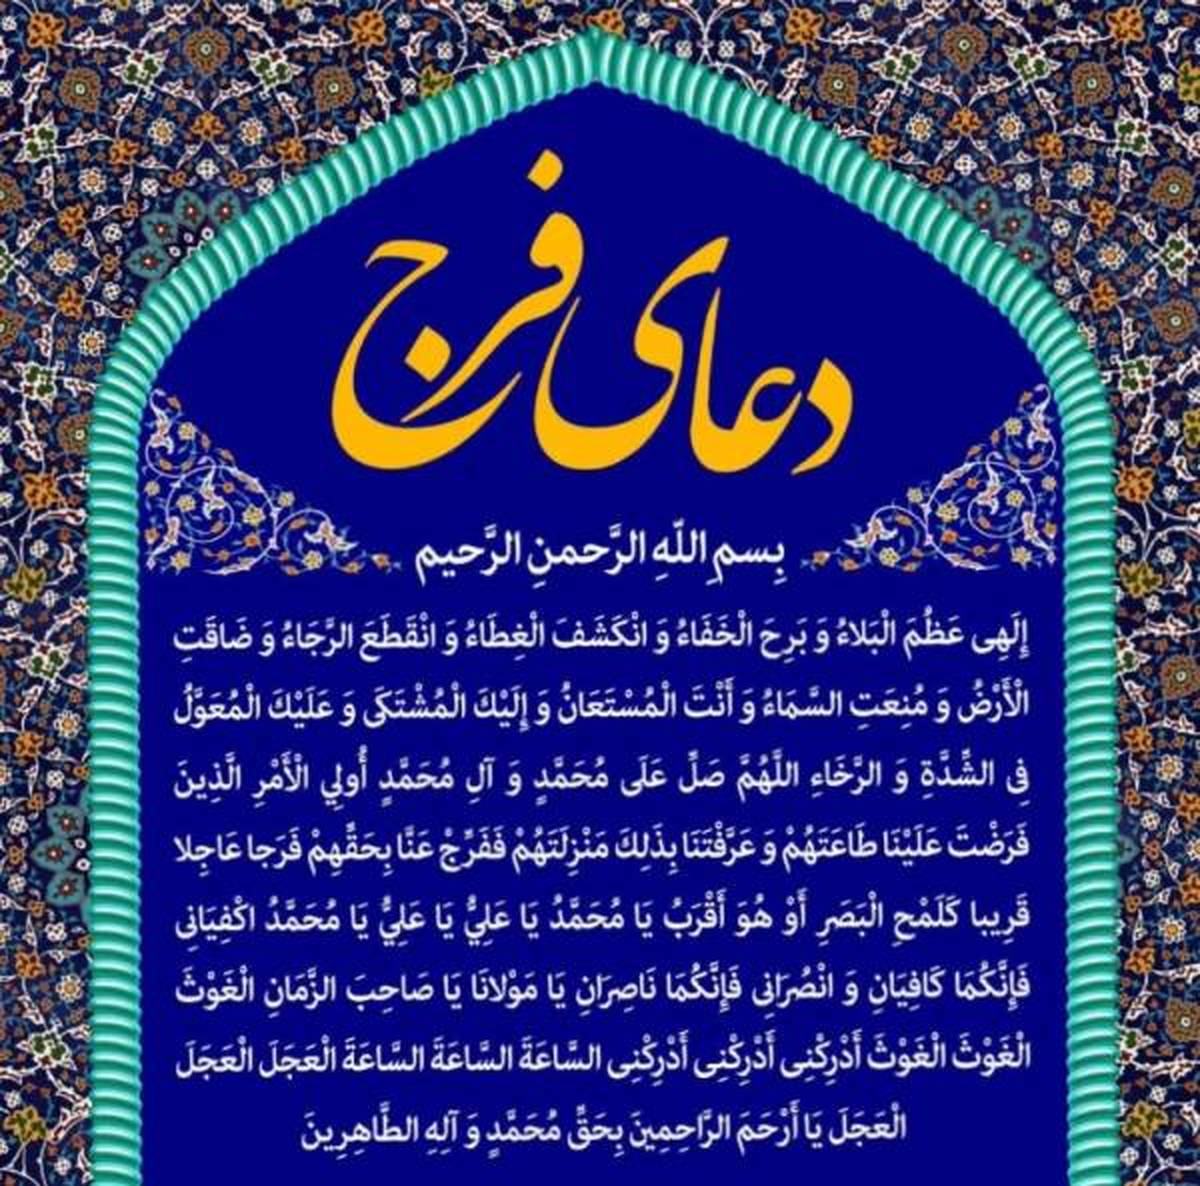 دعای فرج
بِسمِ اللّهِ الرَّحمنِ الرَّحیم
إِلَهِی عَظُمَ الْبَلاءُ وَ بَرِحَ الْخَفَاءُ وَ انْکَشَفَ الْغِطَاءُ وَ انْقَطَعَ الرَّجَاءُ وَ ضَاقَتِ
الْأَرْضُ وَ مُنِعَتِ السَّمَاءُ وَ أَنْتَ الْمُسْتَعَانُ وَ إِلَيْكَ الْمُشْتَكَى وَ عَلَيْكَ الْمُعَوَّلُ
فِی الشِّدَّةِ وَ الرَّخَاءِ اللَّهُمَّ صَلِّ عَلَى مُحَمَّدٍ وَ آلِ مُحَمَّدٍ أُولِي الْأَمْرِ الَّذِينَ
فَرَضْتَ عَلَيْنَا طَاعَتَهُمْ وَ عَرَّفْتَنَا بِذَلِكَ مَنْزِلَتَهُمْ فَفَرِّجْ عَنَّا بِحَقِّهِمْ فَرَجا عَاجِلا
قَرِيبا كَلَمْحِ الْبَصَرِ أَوْ هُوَ أَقْرَبُ يَا مُحَمَّدُ يَا عَلِيُّ يَا عَلِيُّ يَا مُحَمَّدُ اكْفِيَانِی
فَإِنَّكُمَا كَافِيَانِ وَ انْصُرَانِی فَإِنَّكُمَا نَاصِرَانِ يَا مَوْلانَا يَا صَاحِبَ الزَّمَانِ الْغَوْثَ
الْغَوْثَ الْغَوْثَ أَدْرِكْنِی أَدْرِكْنِی أَدْرِكْنِی السَّاعَةَ السَّاعَةَ السَّاعَةَ الْعَجَلَ الْعَجَلَ
الْعَجَلَ يَا أَرْحَمَ الرَّاحِمِينَ بِحَقِّ مُحَمَّدٍ وَ آلِهِ الطَّاهِرِينَ